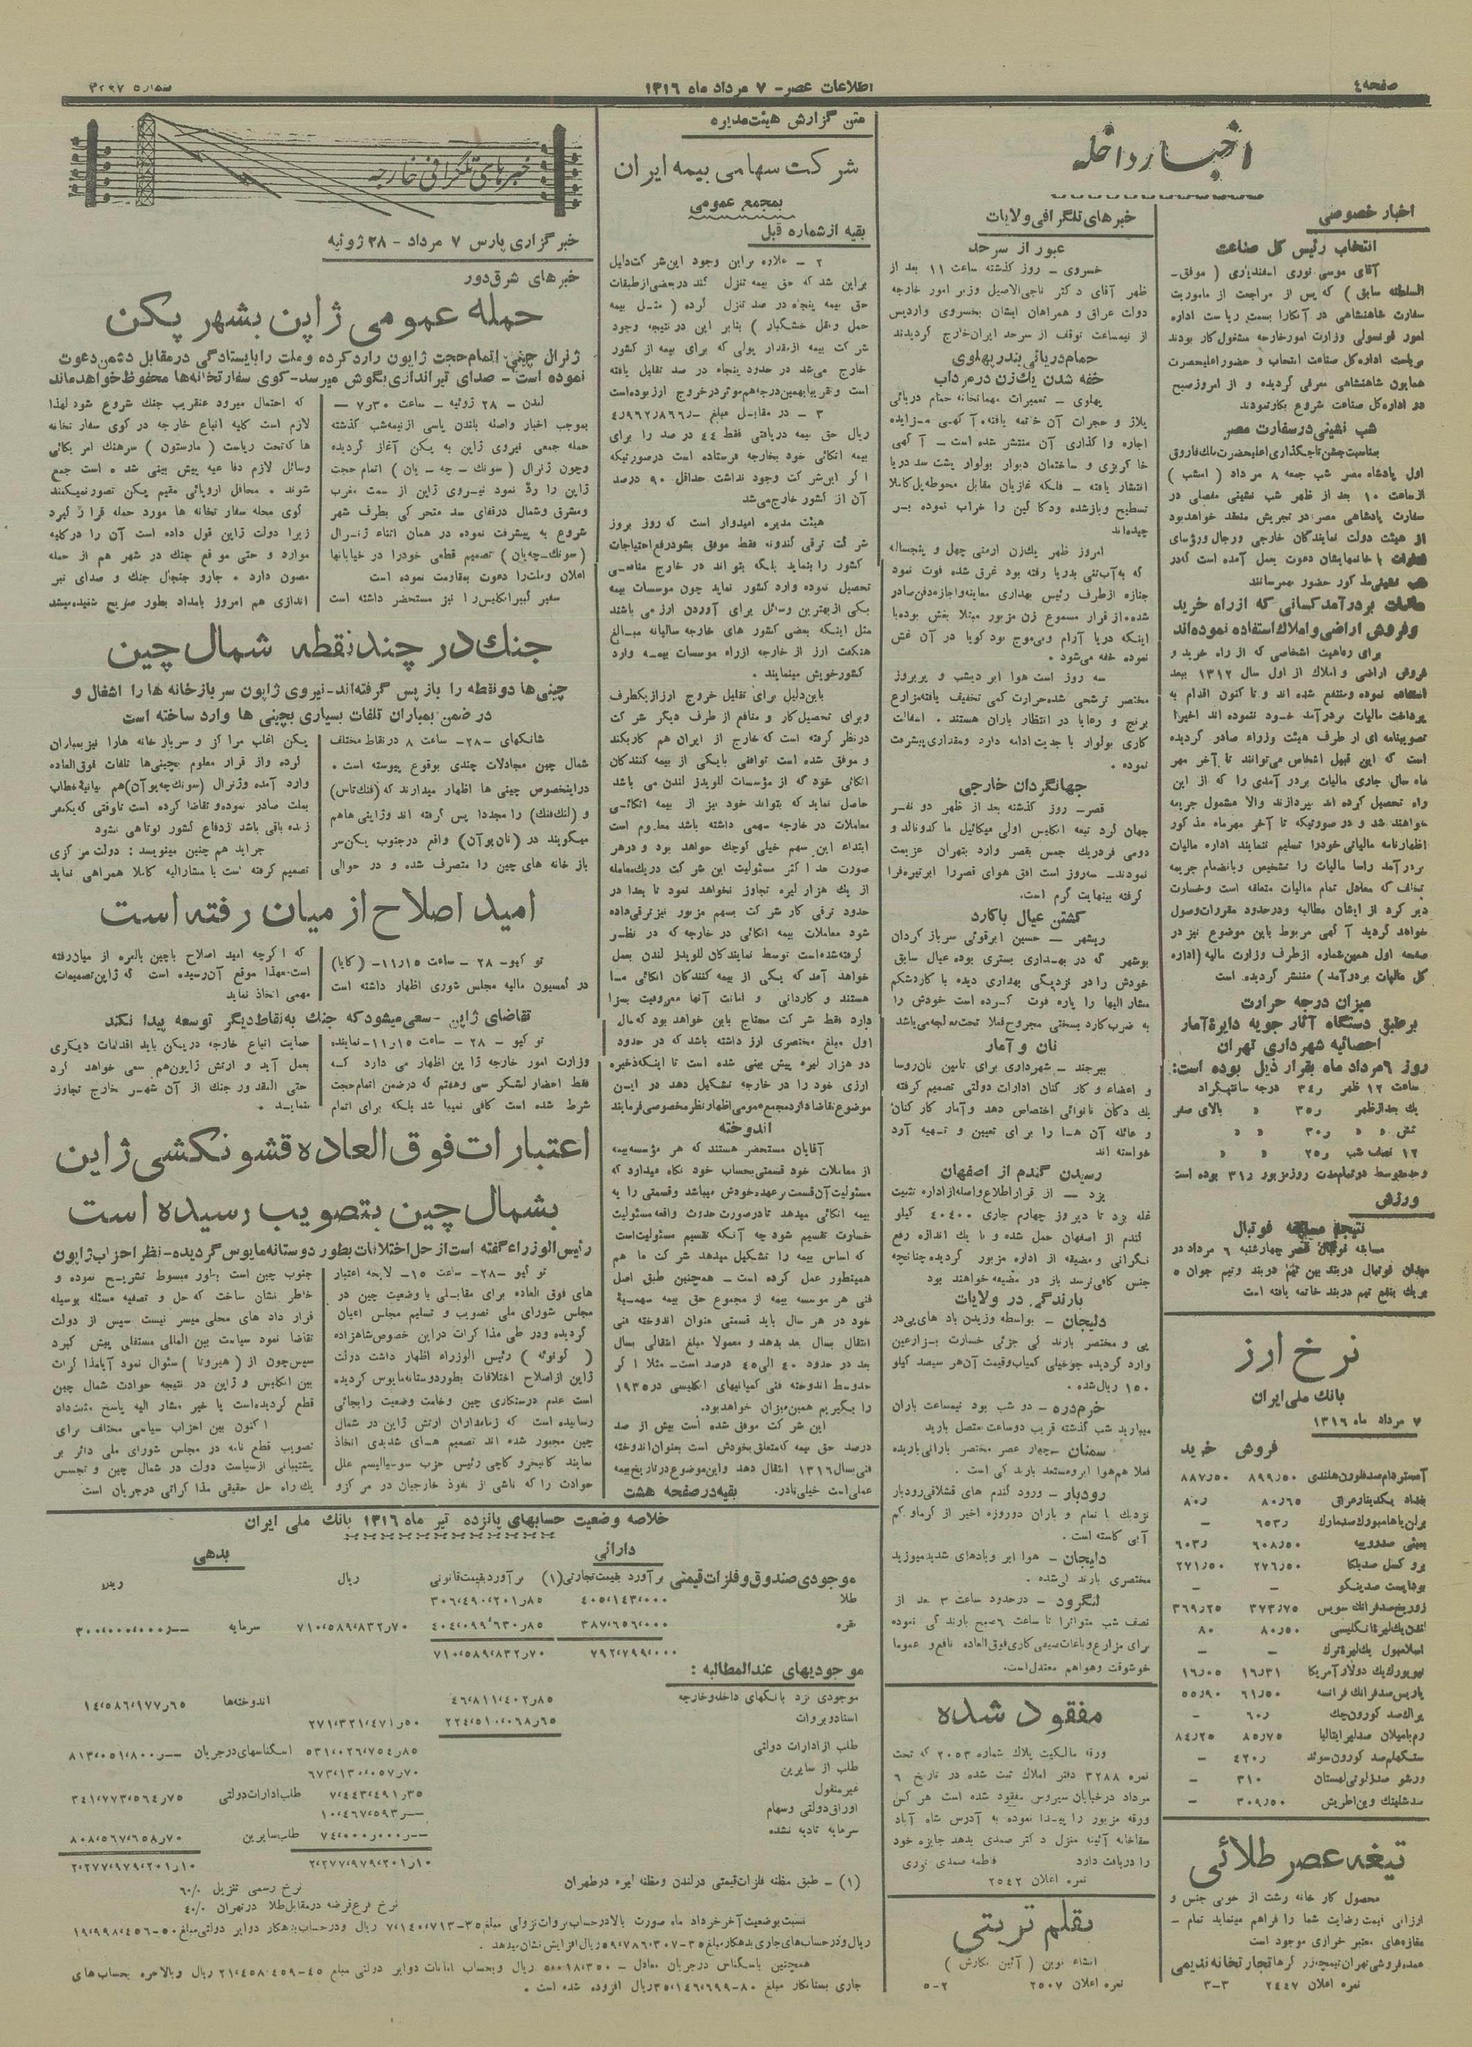 صفحه ٤
اطلاعات عصر - ٧ مرداد ماه ١٣١٦
شماره ٣٢٩٧
اخبار داخله
اخبار خصوصی
انتخاب رئیس کل صناعت
آقای موسی نوری اسفندیاری ( موفق-
السلطنه سابق ) که پس از مراجعت از ماموریت
سفارت شاهنشاهی در آنکارا بسمت ریاست اداره
امور قونسولی وزارت امورخارجه مشغول کار بودند
بریاست اداره کل صناعت انتخاب و حضور اعلیحضرت
همایون شاهنشاهی معرفی گردیده و از امروز صبح
در اداره کل صناعت شروع بکار نمودند
شب نشینی در سفارت مصر
بمناسبت جشن تاجگذاری اعلیحضرت ملك فاروق
اول پادشاه مصر شب جمعه ٨ مرداد ( امشب )
از ساعت ١٠ بعد از ظهر شب نشینی مفصلی در
سفارت پادشاهی مصر در تجریش منعقد خواهد بود
از هیئت دولت نمایندگان خارجی و رجال و رؤسای
ادارات با خانمهایشان دعوت بعمل آمده است که در
شب نشینی مذکور حضور بهمرسانند
مالیات بردرآمد کسانی که از راه خرید
وفروش اراضی و املاك استفاده نموده اند
برای رفاهیت اشخاصی که از راه خرید و
فروش اراضی و املاك از اول سال ١٣١٢ ببعد
استفاده نموده ومنتفع شده اند و تا کنون اقدام به
پرداخت مالیات بردرآمد خود ننموده اند اخیرا
تصویبنامه ای از طرف هیئت وزراء صادر گردیده
است که این قبیل اشخاص می‌توانند تا آخر مهر
ماه سال جاری مالیات بر در آمدی را که از این
راه تحصیل کرده اند بپردازند والا مشمول جریمه
خواهند شد و در صورتیکه تا آخر مهرماه مذکور
اظهارنامه مالیاتی خودرا تسلیم ننمایند اداره مالیات
بردرآمد راسا مالیات را تشخیص و بانضمام جریمه
تخلف که معادل تمام مالیات متعلقه است وخسارت
دیر کرد از ایشان مطالبه ودرحدود مقررات وصول
خواهد گردید آگهی مربوط باین موضوع نیز در
صفحه اول همین شماره از طرف وزارت مالیه (اداره
کل مالیات بردرآمد) منتشر گردیده است.
میزان درجه حرارت
برطبق دستگاه آثار جویه دایرهٔ آمار
احصائیه شهرداری تهران
روز ٦ مرداد ماه بقرار ذیل بوده است:
ساعت ١٢ ظهر ٣٤ر درجه سانتیگراد
یك بعدازظهر ٣٥ر » بالای صفر
شش » » ٣٠ر » »
١٢ نصف شب ٢٥ر » »
وحدمتوسط درتمام مدت روز مزبور ٣١ر بوده است
ورزش
نتیجه مسابقه فوتبال
مسابقه فوتبال عصر چهارشنبه ٦ مرداد در
میدان فوتبال دربند بین تیم دربند و تیم جوان ٥
بریك بنفع تیم دربند خاتمه یافته است
نرخ ارز
بانك ملی ایران
٧ مرداد ماه ١٣١٦
فروش خرید
آمستردام صد فلورن هلندی ٨٩٩٫٥٠ ٨٨٧٫٥٠
بغداد یکدینار عراق ٨٠٫٦٥ ٨٠ر
برلن یا هامبورك صدمارك ٦٥٣ر -
بمبئی صدروپیه ٦٠٨٫٥٠ ٦٠٣ر
بروکسل صدبلکا ٢٧٦٫٥٠ ٢٧١٫٥٠
بوداپست صدپنگو - -
زوریخ صدفرانك سویس ٣٧٣٫٧٥ ٣٦٩٫٢٥
لندن یك لیرهٔ انگلیسی ٨٠٫٥٠ ٨٠
اسلامبول یك لیرهٔ ترك - -
نیویورك یك دولار آمریکا ١٦٫٣١ ١٦٫٠٥
پاریس صدفرانك فرانسه ٦١٫٥٠ ٥٥٫٩٠
پراك صد کورون چك ٦٠ر -
رم یا میلان صدلیر ایتالیا ٨٥٫٧٥ ٨٤٫٢٥
ستکهلم صد کورون سوئد ٤٢٠ر -
ورشو صدزلوتی لهستان ٣١٠ -
صد شلینك وین اطریش ٣٠٩٫٥٠ -
تیغه عصر طلائی
محصول کار خانه رشت از خوبی جنس و
ارزانی قیمت رضایت شما را فراهم مینماید تمام -
مغازه‌های معتبر خرازی موجود است
عمده فروشی تهران تیمچه زرگرها تجارتخانه ندیمی
نمره اعلان ٢٤٤٧ ٣-٣
خبرهای تلگرافی ولایات
عبور از سرحد
خسروی - روز گذشته ساعت ١١ بعد از
ظهر آقای دکتر ناجی الاصیل وزیر امور خارجه
دولت عراق و همراهان ایشان بخسروی وارد پس
از نیمساعت توقف از سرحد ایران خارج گردیدند
حمام دریائی بندر پهلوی
خفه شدن یك زن در مرداب
پهلوی - تعمیرات مهمانخانه حمام دریائی
پلاژ و حجرات آن خاتمه یافته، آگهی مزایده
اجاره واگذاری آن منتشر شده است - آگهی
خاکریزی و ساختمان دیوار بولوار پشت سد دریا
انتشار یافته - فلکه غازیان مقابل محوطه پل کاملا
تسطیح و باز شده ودکاکین را خراب نموده بسر
چیده اند
امروز ظهر یك زن ارمنی چهل و پنجساله
که به آب تنی بدریا رفته بود غرق شده فوت نمود
جنازه از طرف رئیس بهداری معاینه و اجازه دفن صادر
شده، از قرار مسموع زن مزبور مبتلا بغش بوده با
اینکه دریا آرام و بی‌موج بود گویا در آن غش
نموده خفه می‌شود .
سه روز است هوا ابر دیشب و پریروز
مختصر ترشحی شده حرارت کمی تخفیف یافته مزارع
برنج و رعایا در انتظار باران هستند . اسفالت
کاری بولوار با جدیت ادامه دارد ومقداری پیشرفت
نموده .
جهانگردان خارجی
قصر- روز گذشته بعد از ظهر دو نفر
جهان گرد تبعه انگلیس اولی میکائیل ماکدونالد و
دومی فردریك جمس بقصر وارد بتهران عزیمت
نمودند- سه روز است افق هوای قصر را ابر تیره فرا
گرفته بینهایت گرم است.
کشتن عیال با کارد
ریشهر - حسین ابرقوئی سرباز گردان
بوشهر که در بهداری بستری بوده عیال سابق
خودش را در نزدیکی بهداری دیده با کارد شکم
مشار الیها را پاره فوت کرده است خودش را
به ضرب کارد بسختی مجروح فعلا تحت معالجه می‌باشد
نان و آمار
بیرجند - شهرداری برای تامین نان روسا
و اعضاء و کار کنان ادارات دولتی تصمیم گرفته
یك دکان نانوائی اختصاص دهد و آمار کارکنان
و عائله آن ها را برای تعیین و تهیه آرد
خواسته اند
رسیدن گندم از اصفهان
یزد - از قرار اطلاع واصله از اداره تثبیت
غله یزد تا دیروز چهارم جاری ٤٠٤٠٠ کیلو
گندم از اصفهان حمل شده و تا یك اندازه رفع
نگرانی و مضیقه از اداره مزبور گردیده چنانچه
جنس کافی نرسد باز در مضیقه خواهند بود
بارندگی در ولایات
دلیجان - بواسطه وزیدن باد های پی در
پی و مختصر بارندگی جزئی خسارت بزارعین
وارد گردیده جو خیلی کمیاب وقیمت آن هر سیصد کیلو
١٥٠ ریال شده.
خرم دره - در شب بود نیمساعت باران
میبارید شب گذشته قریب دو ساعت متصل بارید
سمنان - چهار عصر مختصر بارانی باریده
فعلا هم هوا ابر ومستعد بارندگی است .
رودبار - ورود گندم های قشلاقی رودبار
نزدیك با تمام و باران دو روزه اخیر از گرما و کم
آبی کاسته است .
دلیجان - هوا ابر و بادهای شدید میوزید
مختصری بارندگی شده .
لنگرود - در حدود ساعت ٣ بعد از
نصف شب متواترا تا ساعت ٦ صبح بارندگی نموده
برای مزارع و باغات صیفی کاری فوق العاده نافع و عموما
خوشوقت و هوا هم معتدل است.
مفقود شده
ورقه مالکیت پلاك شماره ٢٠٥٣ که تحت
نمره ٣٢٨٨ دفتر املاك ثبت شده در تاریخ ٦
مرداد در خیابان سیروس مفقود شده است هر کس
ورقه مزبور را پیدا نموده به آدرس شاه آباد
سقاخانه آئینه منزل دکتر صمدی بدهد جایزه خود
را دریافت دارد فاطمه صمدی نوری
نمره اعلان ٢٥٤٢
بقلم تربتی
انشاء نوین ( آئین نگارش )
نمره اعلان ٢٥٠٧ ٢-٥
متن گزارش هیئت مدیره
شرکت سهامی بیمه ایران
بمجمع عمومی
بقیه از شماره قبل
٢ - علاوه براین وجود این شرکت دلیل
براین شد که حق بیمه تنزل کند در بعضی از طبقات
حق بیمه پنجاه در صد تنزل کرده ( مثل بیمه
حمل ونقل خشکبار ) بنابر این در نتیجه وجود
شرکت بیمه ازمقدار پولی که برای بیمه از کشور
خارج می‌شد در حدود پنجاه در صد تقلیل یافته
است و تقریبا بهمین درجه هم موثر در خروج ارز بوده است
٣ - در مقابل مبلغ -ر٤٫٩٦٢٫٨٦٦
ریال حق بیمه دریافتی فقط ٤٤ در صد را برای
بیمه اتکائی خود بخارجه فرستاده است درصورتیکه
اگر این شرکت وجود نداشت حداقل ٩٠ درصد
آن از کشور خارج می‌شد
هیئت مدیره امیدوار است که روز بروز
شرکت ترقی کندونه فقط موفق بشود رفع احتیاجات
کشور را بنماید بلکه بتواند در خارج منافعی
تحصیل نموده وارد کشور نماید چون موسسات بیمه
یکی از بهترین وسائل برای آوردن ارز می باشند
مثل اینکه بعضی کشور های خارجه سالیانه مبالغ
هنگفت ارز از خارجه از راه موسسات بیمه وارد
کشور خویش مینمایند .
باین دلیل برای تقلیل خروج ارز از یکطرف
وبرای تحصیل کار و منافع از طرف دیگر شرکت
در نظر گرفته است که خارج از ایران هم کار بکند
و موفق شده است توافقی با یکی از بیمه کنندگان
اتکائی خود که از مؤسسات للویدز لندن می باشد
حاصل نماید که بتواند خود نیز از بیمه اتکائی
معاملات در خارجه سهمی داشته باشد معلوم است
ابتداء این سهم خیلی کوچك خواهد بود و درهر
صورت حد اکثر مسئولیت این شرکت در یك معامله
از یك هزار لیره تجاوز نخواهد نمود تا بعدا در
حدود ترقی کار شرکت بسهم مزبور نیز ترقی داده
شود معاملات بیمه اتکائی در خارجه که در نظر
گرفته شده است توسط نمایندگان للویدز لندن بعمل
خواهد آمد که یکی از بیمه کنندگان اتکائی ما
هستند و کاردانی و امانت آنها معروفیت بسزا
دارد فقط شرکت محتاج باین خواهد بود که سال
اول مبلغ مختصری ارز داشته باشد که در حدود
دو هزار لیره پیش بینی شده است تا اینکه ذخیره
ارزی خود را در خارجه تشکیل دهد در این
موضوع تقاضا دارد مجمع عمومی اظهار نظر مخصوصی فرمایند
اندوخته
آقایان مستحضر هستند که هر مؤسسه بیمه
از معاملات خود قسمتی بحساب خود نگاه میدارد که
مسئولیت آن قسمت برعهده خودش میباشد وقسمتی را به
بیمه اتکائی میدهد تا در صورت حدوث واقعه مسئولیت
خسارت تقسیم شود چه آنکه تقسیم مسئولیت است
که اساس بیمه را تشکیل میدهد شرکت ما هم
همینطور عمل کرده است - همچنین طبق اصل
فنی هر موسسه بیمه از مجموع حق بیمه سهمیه
خود در هر سال باید قسمتی بعنوان اندوخته فنی
انتقال بسال بعد بدهد و معمولا مبلغ انتقالی بسال
بعد در حدود ٤٠ الی ٤٥ درصد است- مثلا اگر
حدوسط اندوخته فنی کمپانیهای انگلیسی در ١٩٣٥
را بگیریم همین میزان خواهد بود.
این شرکت موفق شده است بیش از صد
درصد حق بیمه که متعلق بخودش است بعنوان اندوخته
فنی بسال ١٣١٦ انتقال دهد و این موضوع در تاریخ بیمه
عملی است خیلی نادر. بقیه در صفحه هشت
خبرهای تلگرافی خارجه
خبرگزاری پارس ٧ مرداد - ٢٨ ژوئیه
خبرهای شرق دور
حمله عمومی ژاپن بشهر پکن
ژنرال چینی، اتمام حجت ژاپون را رد کرده و ملت را بایستادگی در مقابل دشمن دعوت
نموده است - صدای تیراندازی بگوش میرسد - کوی سفارتخانه‌ها محفوظ خواهد ماند
لندن - ٢٨ ژوئیه - ساعت ٣٠ر٧ -
بموجب اخبار واصله بلندن پاسی از نیمه شب گذشته
حمله جمعی نیروی ژاپن به پکن آغاز گردیده
وچون ژنرال ( سونك - چه - یان ) اتمام حجت
ژاپن را رد نمود نیروی ژاپن از سمت مغرب
ومشرق وشمال درقفای سد متحرکی بطرف شهر
شروع به پیشرفت نموده در همان اثناء ژنرال
(سونك-چه یان) تصمیم قطعی خودرا در خیابانها
اعلان وملت را دعوت بمقاومت نموده است
سفیر کبیر انگلیس را نیز مستحضر داشته است
که احتمال میرود عنقریب جنك شروع شود لهذا
لازم است کلیه اتباع خارجه در کوی سفارتخانه
ها که تحت ریاست ( مارستون ) سرهنك امریکائی
وسائل لازم دفاعیه پیش بینی شده است جمع
شوند . محافل اروپائی مقیم پکن تصور نمیکنند
کوی محله سفارتخانه ها مورد حمله قرار گیرد
زیرا دولت ژاپن قول داده است آن را در کلیه
موارد و حتی موقع جنك در شهر هم از حمله
مصون دارد . جار و جنجال جنك و صدای تیر
اندازی هم امروز بامداد بطور صریح شنیده میشد
جنك در چند نقطه شمال چین
چینی‌ها دو نقطه را باز پس گرفته‌اند - نیروی ژاپون سربازخانه ها را اشغال و
در ضمن بمباران تلفات بسیاری بچینی ها وارد ساخته است
شانگهای -٢٨- ساعت ٨ در نقاط مختلف
شمال چین مجادلات چندی بوقوع پیوسته است .
در اینخصوص چینی ها اظهار میدارند که (فنك تاس)
و (لنك فنك) را مجددا پس گرفته اند وژاپنی‌ها هم
میگویند در (نان یوآن) واقع در جنوب پکن سر
باز خانه های چین را متصرف شده و در حوالی
پکن اغلب مراکز و سرباز خانه هارا نیز بمباران
کرده واز قرار معلوم بچینی‌ها تلفات فوق العاده
وارد آمده وژنرال (سونك چه یوآن) هم بیانیهٔ خطاب
بملت صادر نموده و تقاضا کرده است تا وقتی که یکنفر
زنده باقی باشد از دفاع کشور کوتاهی نشود
جراید هم چنین مینویسد : دولت مرکزی
تصمیم گرفته است با مشارالیه کاملا همراهی نماید
امید اصلاح از میان رفته است
توکیو- ٢٨ - ساعت ١٥ر١١- (کایا)
در کمسیون مالیه مجلس شوری اظهار داشته است
که اگرچه امید اصلاح باچین بالمره از میان رفته
است معهذا موقع آن رسیده است که ژاپن تصمیمات
مهمی اتخاذ نماید
تقاضای ژاپن - سعی میشود که جنك به نقاط دیگر توسعه پیدا نکند
توکیو - ٢٨ - ساعت ١٥ر١١- نماینده
وزارت امور خارجه ژاپن اظهار می دارد که
فقط احضار لشگر سی وهفتم که درضمن اتمام حجت
شرط شده است کافی نمیباشد بلکه برای اتمام
حمایت اتباع خارجه در پکن باید اقدامات دیگری
بعمل آید و ارتش ژاپون هم سعی خواهد کرد
حتی المقدور جنك از آن شهر خارج تجاوز
ننماید .
اعتبارات فوق العاده قشونکشی ژاپن
بشمال چین بتصویب رسیده است
رئیس الوزراء گفته است از حل اختلافات بطور دوستانه مایوس گردیده - نظر احزاب ژاپون
توکیو -٢٨- ساعت ١٥- لایحه اعتبار
های فوق العاده برای مقابلی با وضعیت چین در
مجلس شورای ملی تصویب و تسلیم مجلس اعیان
گردیده ودر طی مذاکرات در این خصوص شاهزاده
( کونوئه ) رئیس الوزراء اظهار داشت دولت
ژاپن از اصلاح اختلافات بطور دوستانه مایوس گردیده
است عدم درستکاری چین وخامت وضعیت را بجائی
رسانیده است که زمامداران ارتش ژاپن در شمال
چین مجبور شده اند تصمیم های شدیدی اتخاذ
نمایند کانیخرو کاچی رئیس حزب سوسیالیسم علل
حوادث را که ناشی از نفوذ خارجیان در مرکز و
جنوب چین است بطور مبسوط تشریح نموده و
خاطر نشان ساخت که حل و تصفیه مسئله بوسیله
قرار داد های محلی میسر نیست سپس از دولت
تقاضا نمود سیاست بین المللی مستقلی پیش گیرد
سپس چون از ( هیروتا ) سئوال نمود آیا مذاکرات
بین انگلیس و ژاپن در نتیجه حوادث شمال چین
قطع گردیده است یا خیر مشار الیه پاسخ مثبت داد
اکنون بین احزاب سیاسی مختلف برای
تصویب قطع نامه در مجلس شورای ملی دائر بر
پشتیبانی از سیاست دولت در شمال چین و تجسس
یك راه حل حقیقی مذاکراتی در جریان است
خلاصه وضعیت حسابهای پانزده تیر ماه ١٣١٦ بانك ملی ایران
دارائی
بدهی
موجودی صندوق و فلزات قیمتی برآورد بقیمت تجارتی (١) برآورد بقیمت قانونی ریال ریال
طلا ٤٠٥،١٤٣،٠٠٠ ٣٠٦،٤٩٠،٢٠١ر٨٥
نقره ٣٨٧،٦٥٦،٠٠٠ ٤٠٤،٠٩٩،٦٣٠ر٨٥ ٧١٠،٥٨٩،٨٣٢ر٧٠ سرمایه ٣٠٠،٠٠٠،٠٠٠ر--
٧٩٢،٧٩٩،٠٠٠ ٧١٠،٥٨٩،٨٣٢ر٧٠
موجودیهای عندالمطالبه :
موجودی نزد بانکهای داخله و خارجه ٤٦،٨١١،٤٠٢ر٨٥ اندوخته‌ها ١٤،٥٨٦،١٧٧ر٦٥
اسناد و بروات ٢٢٤،٥١٠،٠٦٨ر٦٥ ٢٧١،٣٢١،٤٧١ر٥٠
طلب از ادارات دولتی ٥٣١،٠٢٦،٧٥٤ر٨٥ اسکناسهای در جریان ٨١٣،٠٥١،٨٠٠ر--
طلب از سایرین ٦٧٣،١٣٠،٠٥٧ر٧٠
غیر منقول ٧،٤٤٣،٤٩١ر٣٥ طلب ادارات دولتی ٣٤١،٧٧٣،٥٦٤ر٧٥
اوراق دولتی و سهام ١٠،٤٦٧،٥٩٣ر--
سرمایه تادیه نشده ٧٤،٠٠٠،٠٠٠ر-- طلب سایرین ٨٠٨،٥٦٧،٦٥٨ر٧٠
٢،٢٧٧،٩٧٩،٢٠١ر١٠ ٢،٢٧٧،٩٧٩،٢٠١ر١٠
(١) - طبق مظنه فلزات قیمتی در لندن و مظنه لیره در طهران
نرخ رسمی تنزیل ٦٠/٠
نرخ فرع قرضه در مقابل طلا در تهران ٤٠/٠
نسبت بوضعیت آخر خرداد ماه صورت بالا در حساب بروات نزولی مبلغ ٣٥-٧،١٤٠،٧١٣ ریال ودر حساب بدهکار دوایر دولتی مبلغ ٥٠-١٩،٩٩٨،٤٥٦
ریال ودر حساب‌های جاری بدهکار مبلغ ٣٥-٥٩،٧٨٦،٣٠٧ ریال افزایش نشان میدهد .
همچنین باسکناس در جریان معادل -٥،٠١٨،٣٥٠ ریال وبحساب امانات دوایر دولتی مبلغ ٤٥-٢١،٤٥٨،٤٥٩ ریال وبالاخره بحساب های
جاری بستانکار مبلغ ٨٠-٣٥،١٤٦،٦٩٩ ریال افزوده شده است .